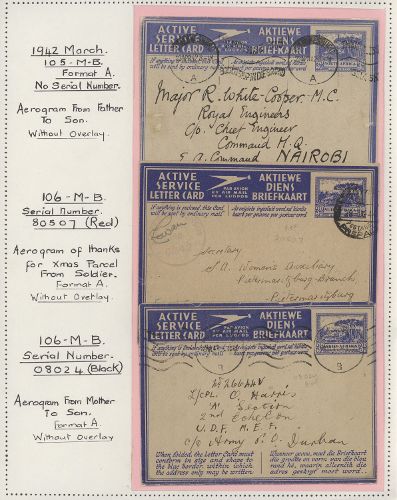 1942 March.
105-M-B.
Format A.
No Serial Number.
Aerogram From Father
To Son.
Without Overlay.
106-M-B.
Serial Number.
80507 (Red)
Aerogram of thanks
for Xmas Parcel
From Soldier.
Format A.
Without Overlay.
106-M-B.
Serial Number.
08024 (Black)
Aerogram From Mother
To Son.
Format A
Without Overlay
ACTIVE SERVICE LETTER CARD
AKTIEWE DIENS BRIEFKAART
Major R. White-Cooper M.C.
Royal Engineers
C/o. Chief Engineer
Command H.Q.
Command NAIROBI
ACTIVE SERVICE LETTER CARD
PAR AVION
BY AIR MAIL
PER LUGPOS
AKTIEWE DIENS BRIEFKAART
If anything is enclosed, this card
will be sent by ordinary mail
Secretary
S.A. Women's Auxiliary
Pietermaritzburg Branch
Pietermaritzburg
ACTIVE SERVICE LETTER CARD
PAR AVION
BY AIR MAIL
PER LUGPOS
AKTIEWE DIENS BRIEFKAART
L/CPL. C. Harris
'A' Section
2nd Echelon
U.D.F. M.E.F.
c/o Army P.O. Durban
When folded, the Letter Card must
conform in size and shape to
the blue border, within which
the address only may be written.
Wanneer gevou, moet die Briefkaart
die grootte en vorm van die blou
rand hê, waarin alleenlik die
adres geskryf moet word.